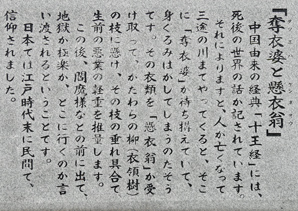 『奪衣婆と懸衣翁』
中国由来の経典「十王経」には、
死後の世界の話が記されています。
それによりますと、人が亡くなって
三途の川までやってくると、そこ
に「奪衣婆」が待ち構えていて、
身ぐるみはがしてしまうのだそう
です。その衣類を「懸衣翁」が受
け取って、かたわらの柳(衣領樹)
の枝に懸け、その枝の垂れ具合で
生前の悪業の軽重を推量します。
この後、閻魔様などの前に出て、
地獄か極楽か、どこに行くのか言
い渡されるということです。
日本では江戸時代末に民間で、
信仰されました。